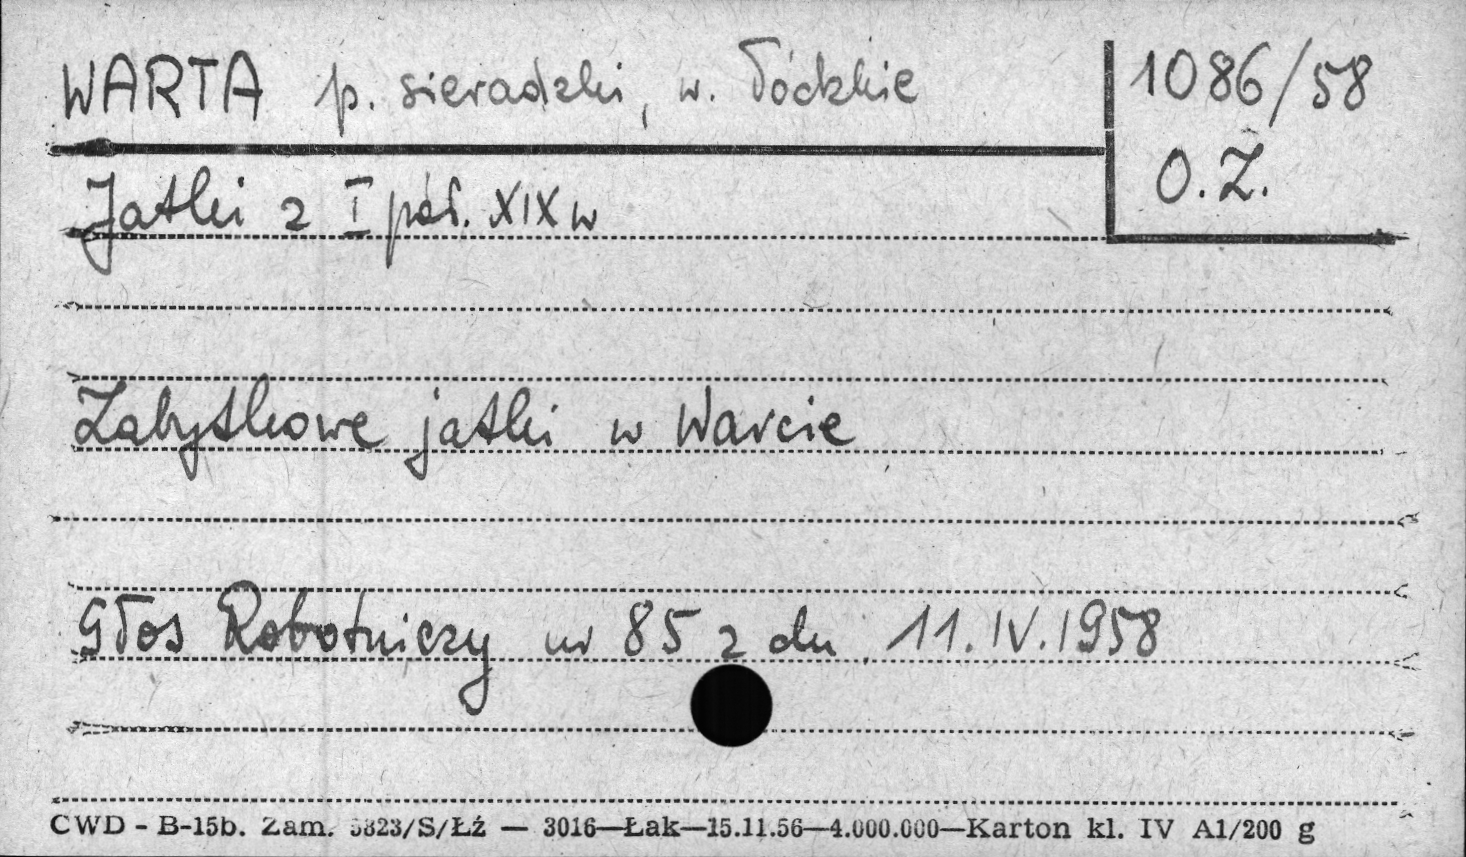 WARTA p. sieradzki, w. Łódzkie
1086/58
O.Z.
Jatki z I poł. XIX w
Zabytkowe jatki w Warcie
Głos Robotniczy nr 85 z dn. 11.IV.1958
CWD - B-15b. Zam. 5823/S/Łź — 3016—Łak—15.11.56—4.000.000—Karton kl. IV A1/200 g